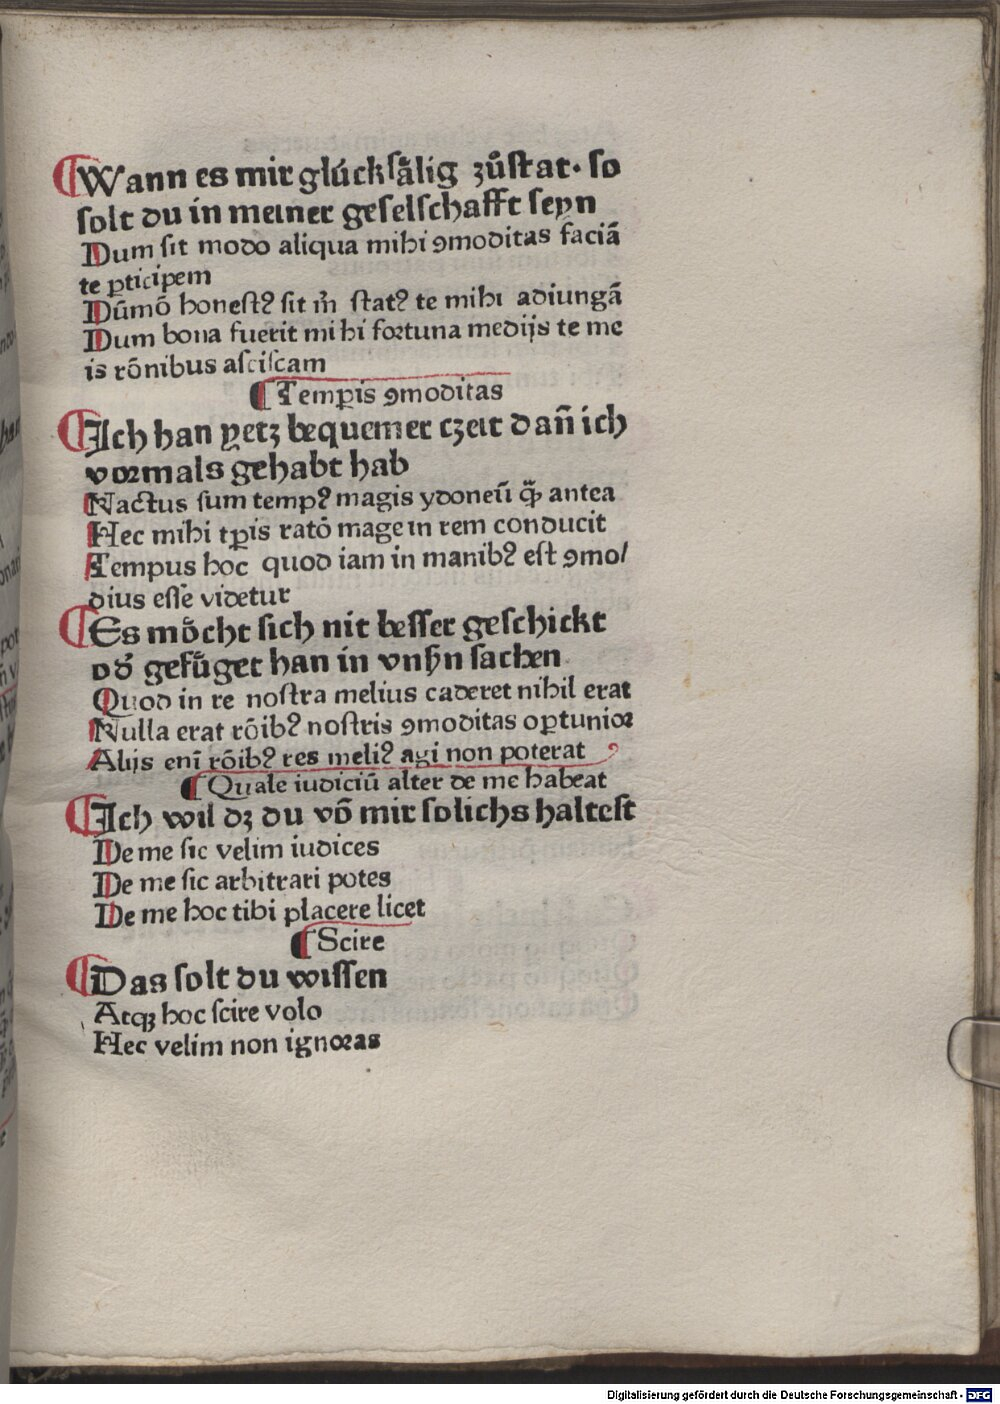 ¶Wann es mir glúckſaͤlig zuͦſtat· ſo
ſolt du in meiner geſelſchafft ſeyn
Dum ſit modo aliqua mihi ꝯmoditas faciā
te ꝑticipem
Dūmō honeſtꝰ ſit m̄ ſtatꝰ te mihi adiungā
Dum bona fuerit mihi foꝛtuna medijs te me
is rōnibus aſciſcam
¶Temꝑis ꝯmoditas
¶Ich han yetz bequemer czeit dan̄ ich
voꝛmals gehabt hab
Nactus ſum tempꝰ magis ydoneū qͣ̄ antea
Hec mihi tꝑis ratō mage in rem conducit
Tempus hoc quod iam in manibꝰ eſt ꝯmo/
dius eſſe videtur
¶Es moͤcht ſich nit beſſer geſchickt
od̕ gefuͤget han in vnſn ſachen
Quod in re noſtra melius caderet nihil erat
Nulla erat rōibꝰ noſtris ꝯmoditas opꝛtunioꝛ
Alijs enī rōibꝰ res meliꝰ agi non poterat
¶Quale iudiciū alter de me habeat
¶Ich wil dz du vō mir ſolichs halteſt
De me ſic velim iudices
De me ſic arbitrari potes
De me hoc tibi placere licet
¶Scire
¶Das ſolt du wiſſen
Atqꝫ hoc ſcire volo
Hec velim non ignoꝛas
Digitalisierung gefördert durch die Deutsche Forschungsgemeinschaft - DFG